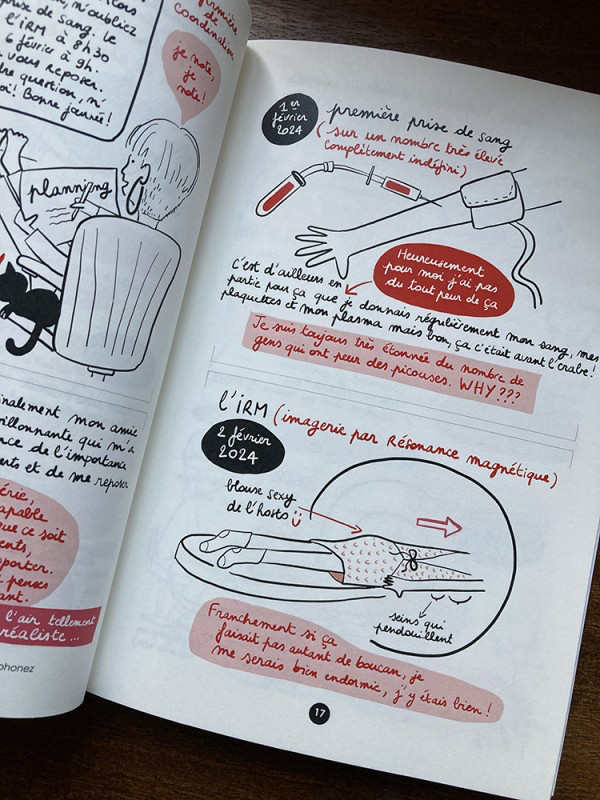 n'oubliez
prise de sang. Le
l'IRM à 8h30
6 février à 9h
vous reposer.
question, n'
! Bonne journée!
de
coordination
je note,
je
note!
planning
finalement mon amie
qui m'a
de l'importance
et de me reposer
capable
que ce soit
penses
l'air tellement
réaliste...
1er
février
2024
première prise de sang
(sur un nombre très élevé
complètement indéfini)
Heureusement
pour moi j'ai pas
du tout peur de ça
C'est d'ailleurs en
partie pour ça que je donnais régulièrement mon sang, mes
plaquettes et mon plasma mais bon, ça c'était avant l'crabe!
Je suis toujours très étonnée du nombre de
gens qui ont peur des picouses. WHY???
l'IRM (imagerie par Résonance magnétique)
2 février
2024
blouse sexy
de l'hosto
seins qui
pendouillent
Franchement si ça
faisait pas autant de boucan, je
me serais bien endormie, j'y étais bien!
17